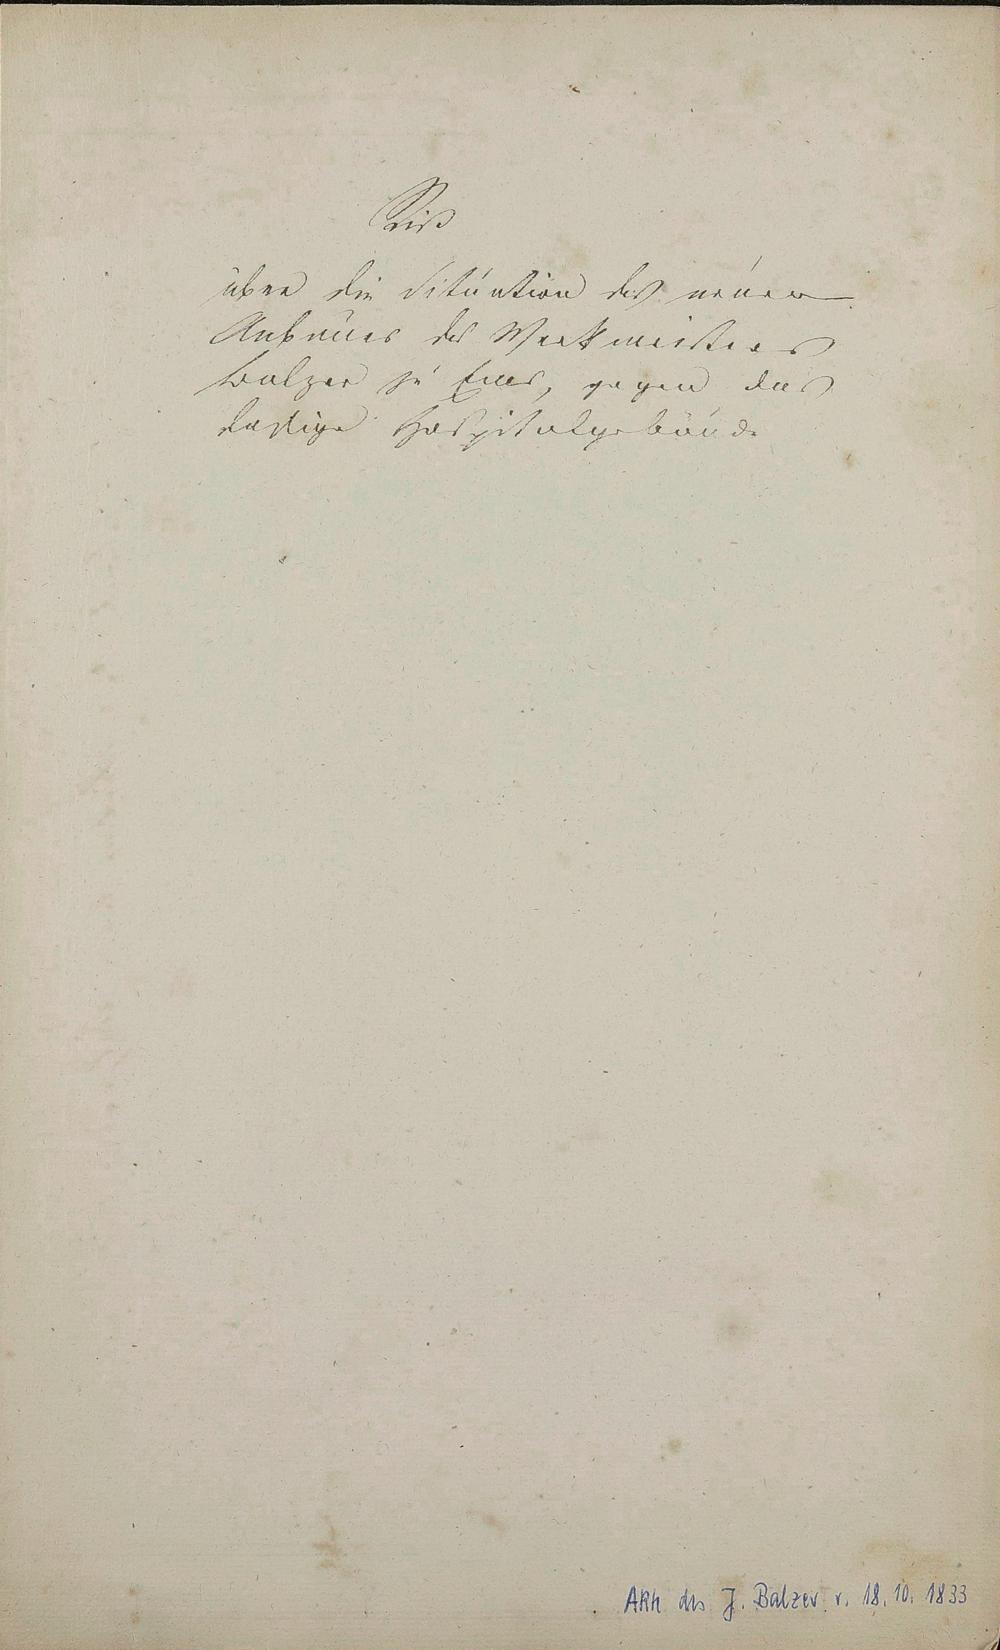 Riß
über die Situation des neuen
Anbaues des Werkmeisters
Balzer zu Ems, gegen das
dasige Hospitalgebäude
Akk des J. Balzer v. 18.10.1833